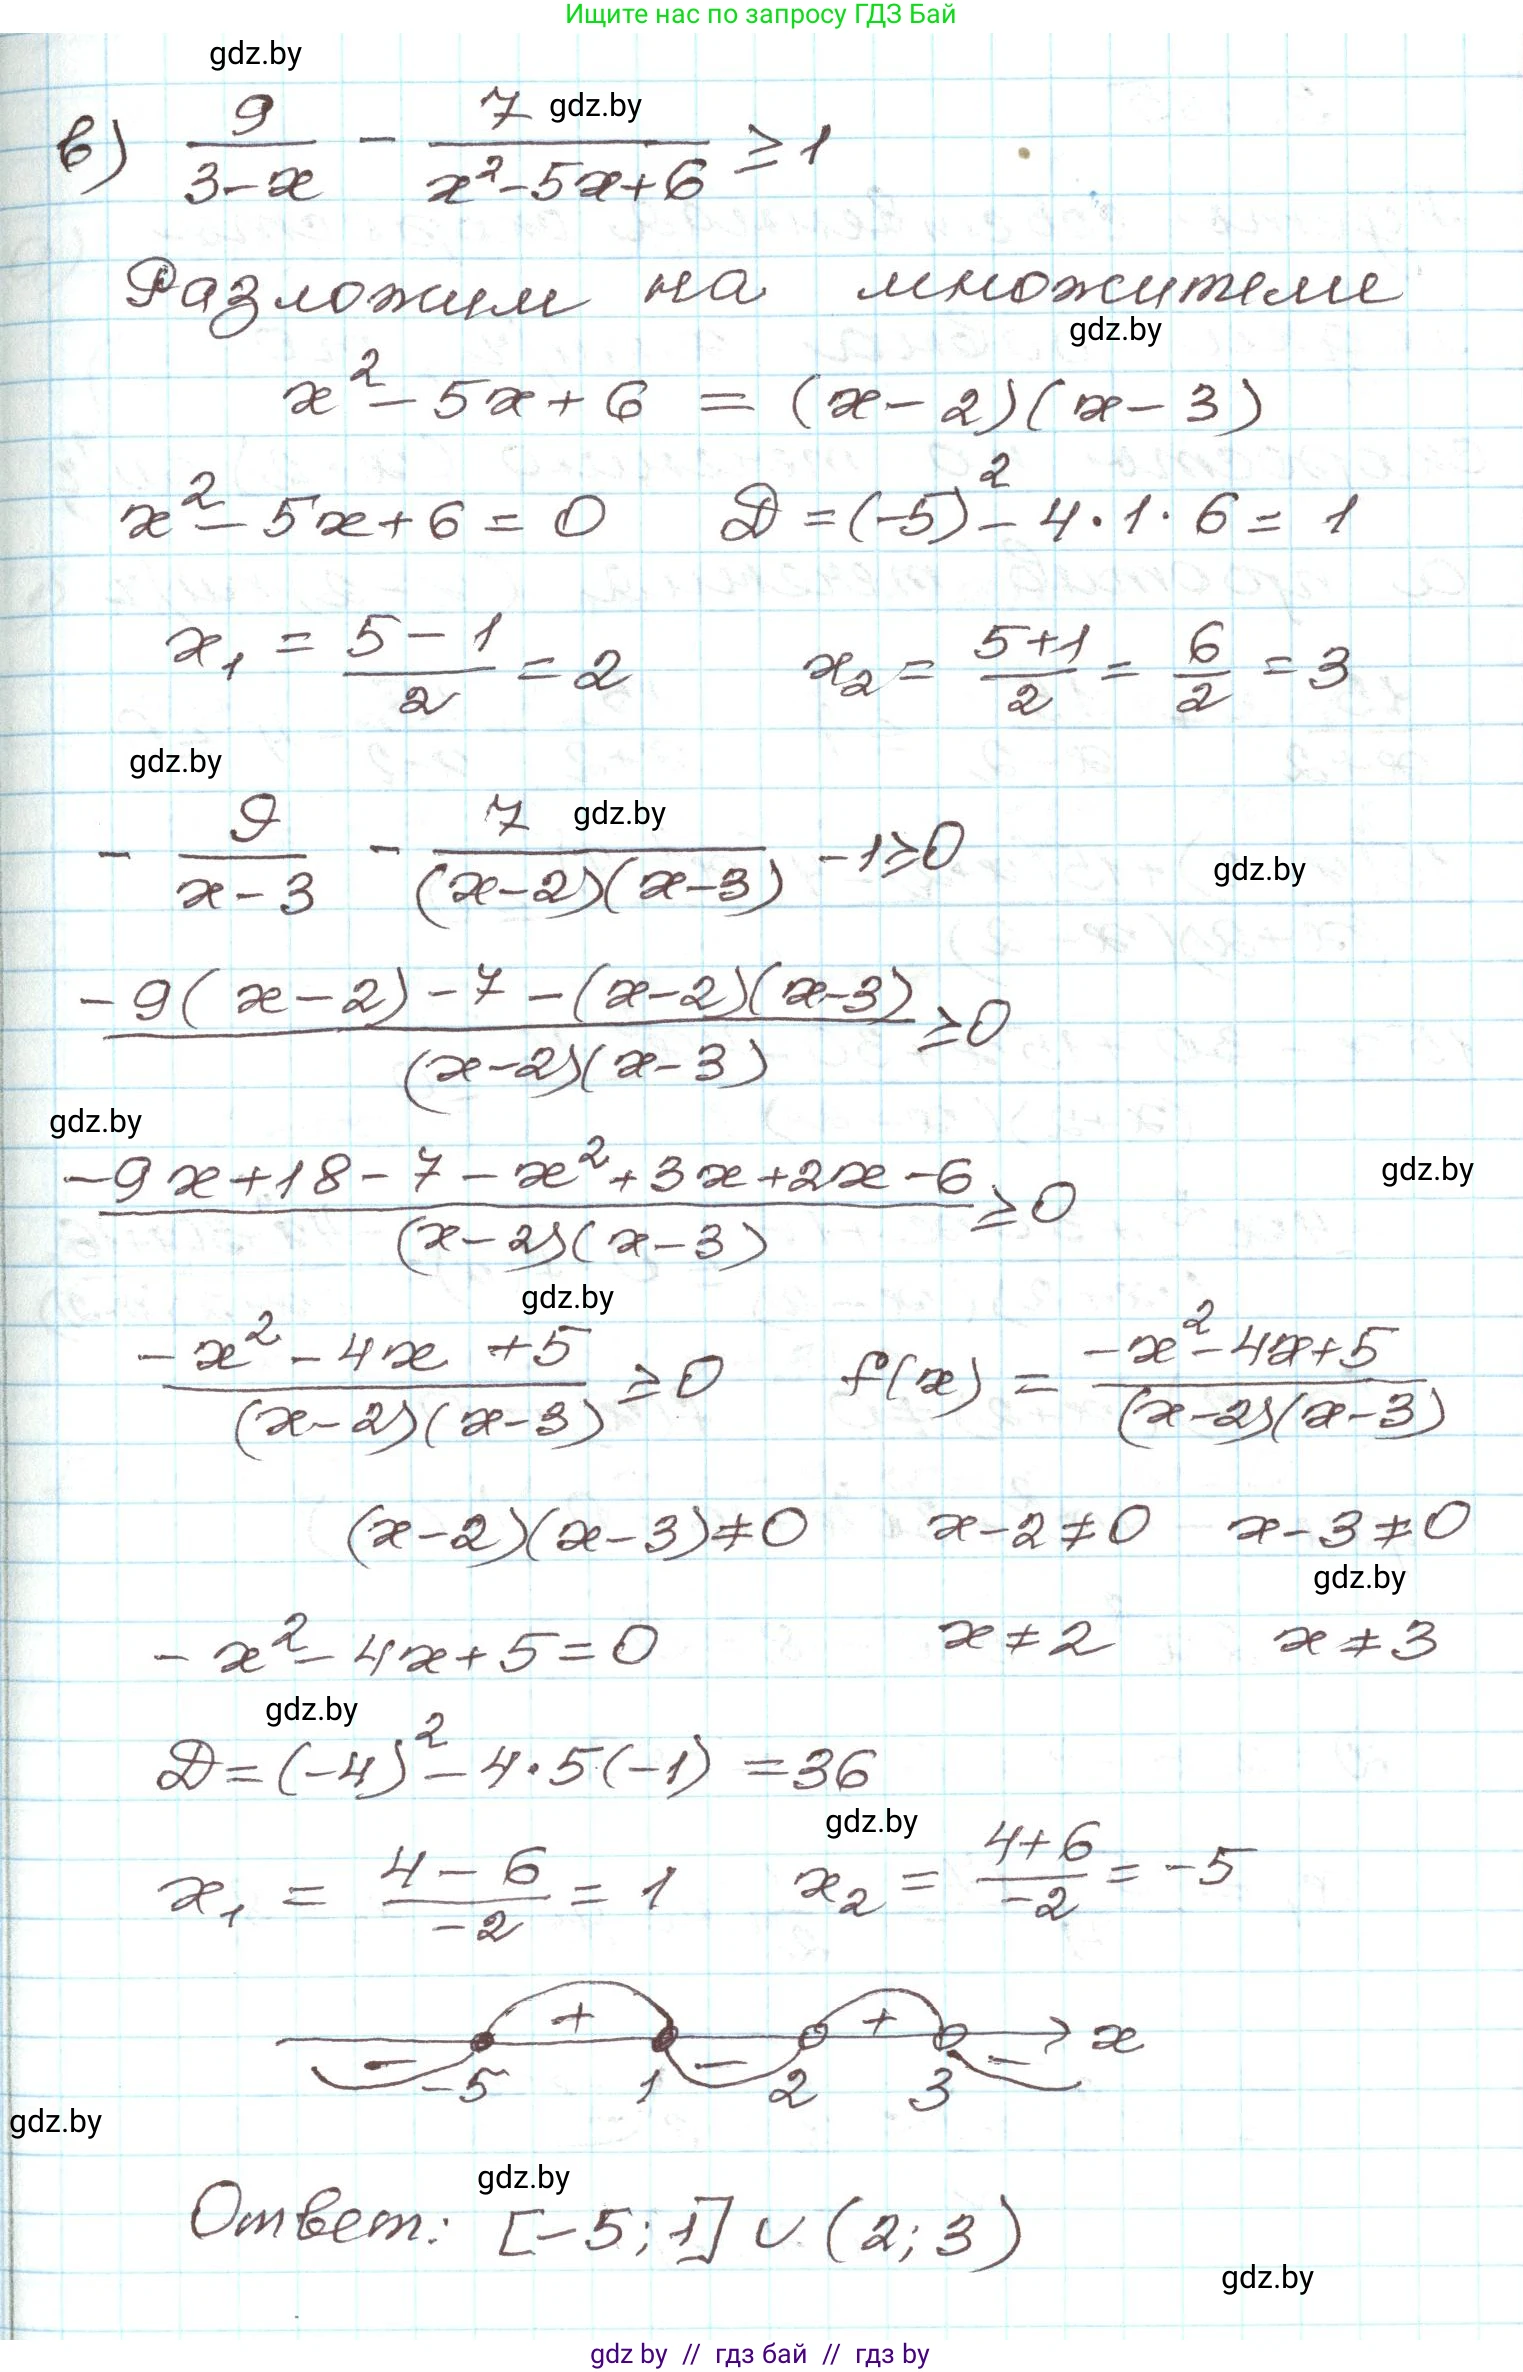 Ищите нас по запросу ГДЗ Бай
gdz.by
в) 9/(3-x) - 7/(x²-5x+6) ≥ 1
gdz.by
Разложим на множители
gdz.by
x² - 5x + 6 = (x-2)(x-3)
x² - 5x + 6 = 0 D = (-5)² - 4·1·6 = 1
x₁ = (5-1)/2 = 2 x₂ = (5+1)/2 = 6/2 = 3
gdz.by
- 9/(x-3) - 7/((x-2)(x-3)) - 1 ≥ 0
gdz.by
gdz.by
(-9(x-2) - 7 - (x-2)(x-3))/((x-2)(x-3)) ≥ 0
gdz.by
(-9x+18-7-x²+3x+2x-6)/((x-2)(x-3)) ≥ 0
gdz.by
gdz.by
(-x²-4x+5)/((x-2)(x-3)) ≥ 0 f(x) = (-x²-4x+5)/((x-2)(x-3))
(x-2)(x-3)≠0 x-2≠0 x-3≠0
gdz.by
-x²-4x+5=0 x≠2 x≠3
gdz.by
D=(-4)²-4·5(-1)=36
gdz.by
x₁ = (4-6)/(-2) = 1 x₂ = (4+6)/(-2) = -5
+ +
x
- - -
-5 1 2 3
gdz.by
gdz.by
Ответ: [-5;1]∪(2;3)
gdz.by
gdz by // гдз бай // гдз by